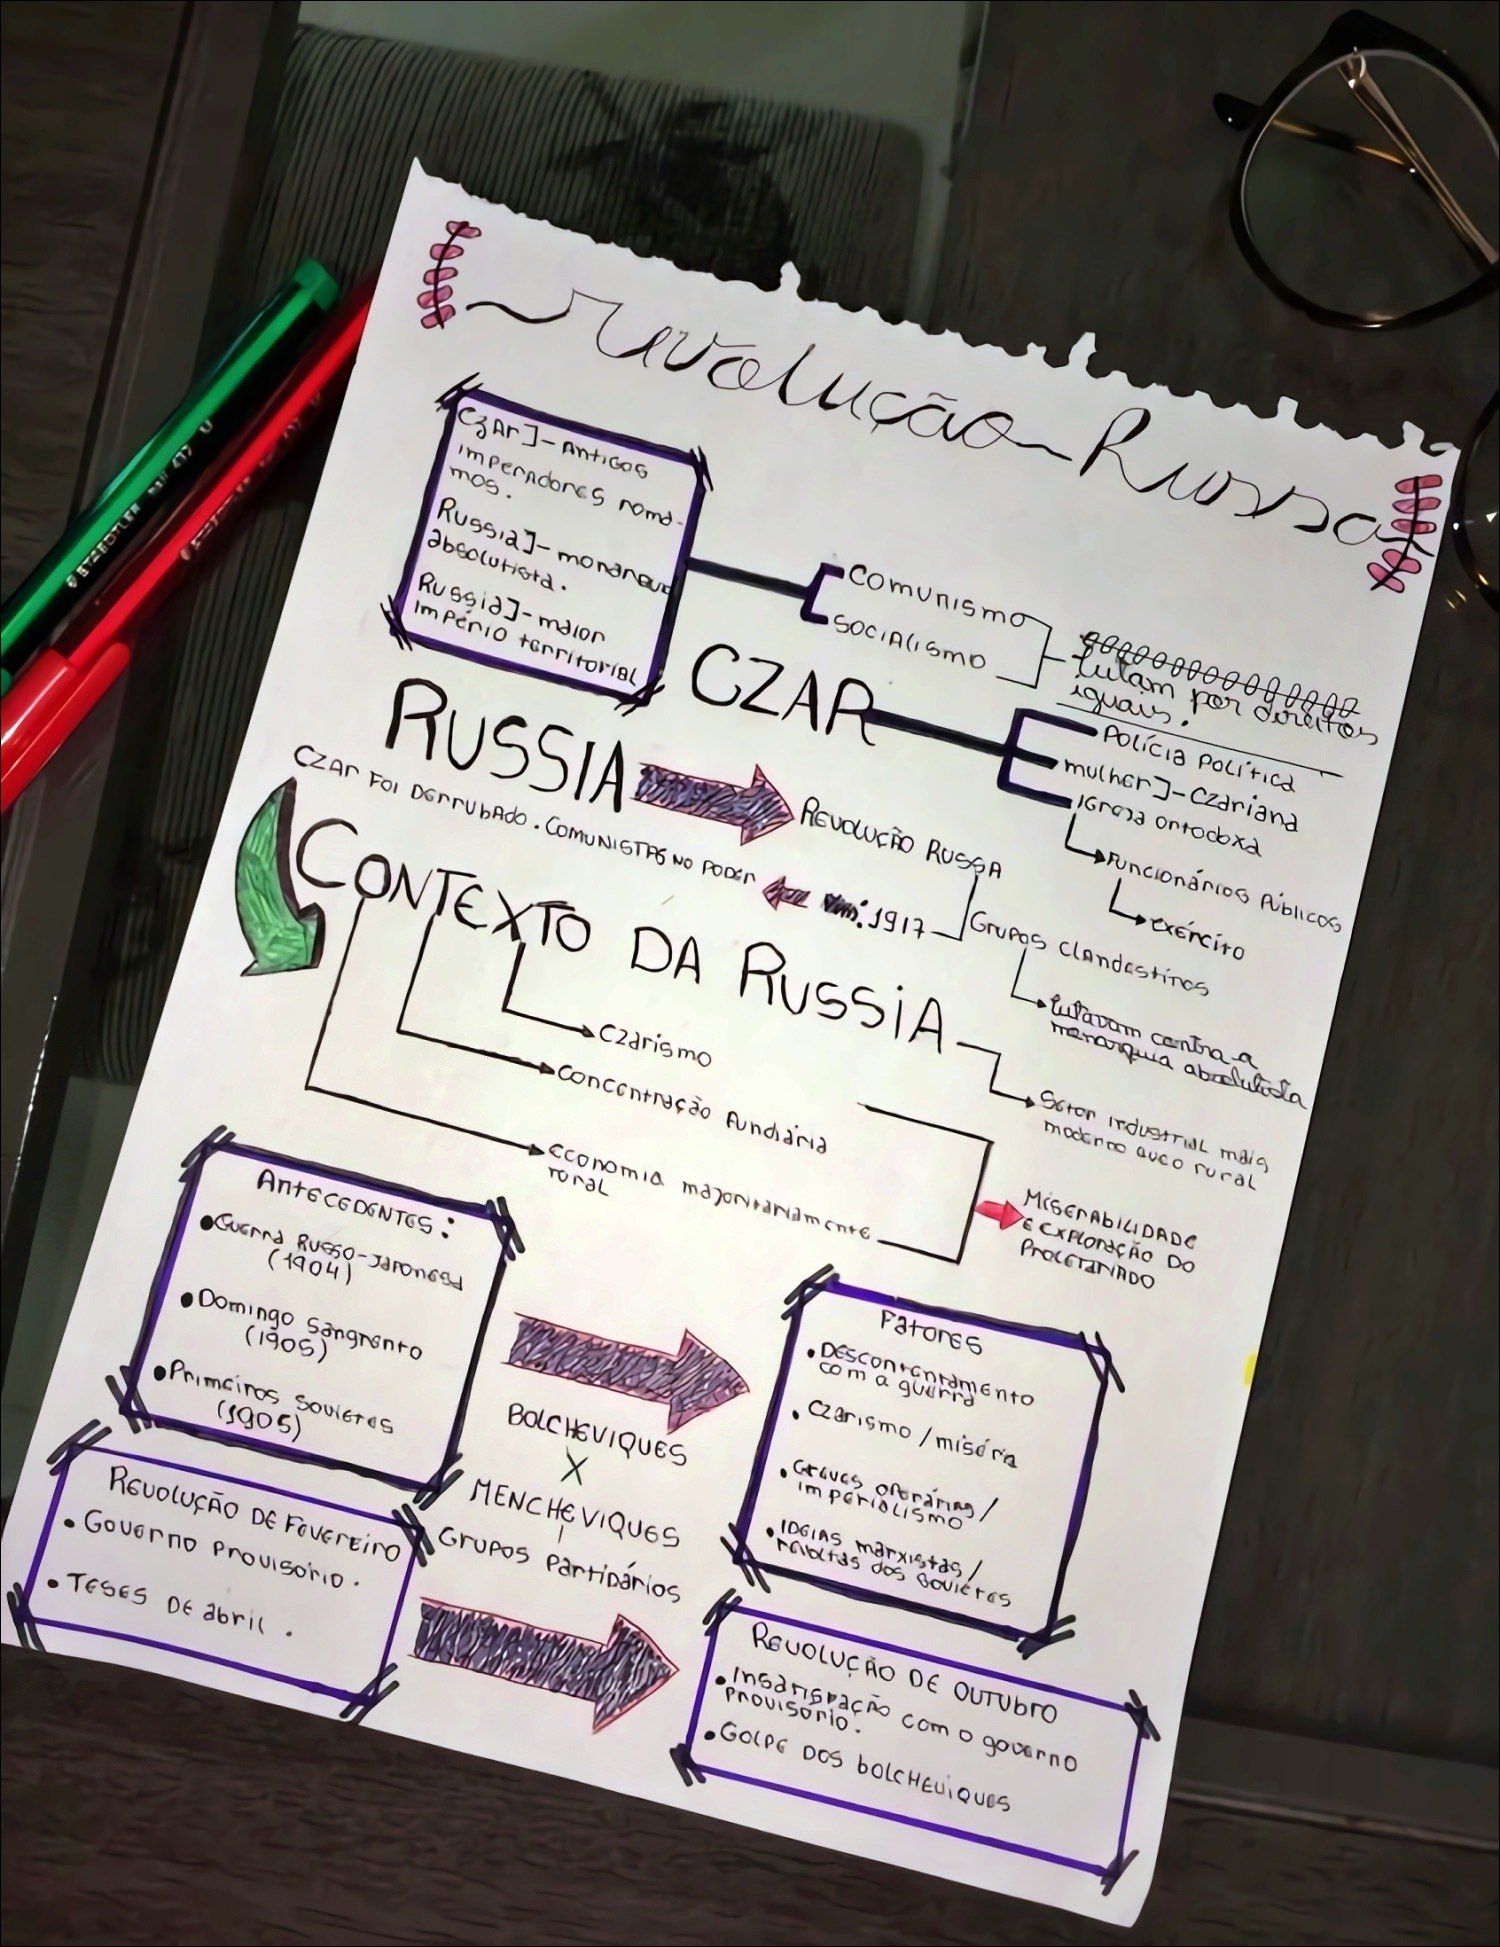 Revolução Russa
Czar]- Antigos
imperadores roma-
nos.
Russia]- monarquia
absolutista.
Russia]- maior
império territorial
Comunismo
socialismo
lutam por direitos
iguais.
CZAR
Polícia política
mulher]- czariana
igreja ortodoxa
Funcionários Públicos
exército
RUSSIA
Revolução Russa
Czar foi derrubado. Comunistas no poder
1917
Grupos clandestinos
lutavam contra a
monarquia absolutista
CONTEXTO DA RUSSIA
czarismo
concentração fundiária
economia majoritariamente
rural
Setor industrial mais
moderno que o rural
Miserabilidade
e exploração do
proletariado
Antecedentes:
Guerra Russo-Japonesa
(1904)
Domingo sangrento
(1905)
Primeiros sovietes
(1905)
BOLCHEVIQUES
X
MENCHEVIQUES
Grupos partidários
Fatores
Descontentamento
com a guerra
czarismo / miséria
Greves operárias /
imperialismo
IDEIAS marxistas /
revoltas dos sovietes
Revolução de Fevereiro
Governo provisório.
Teses de abril.
Revolução de outubro
Insatisfação com o governo
provisório.
Golpe dos bolcheviques
STAEDTLER